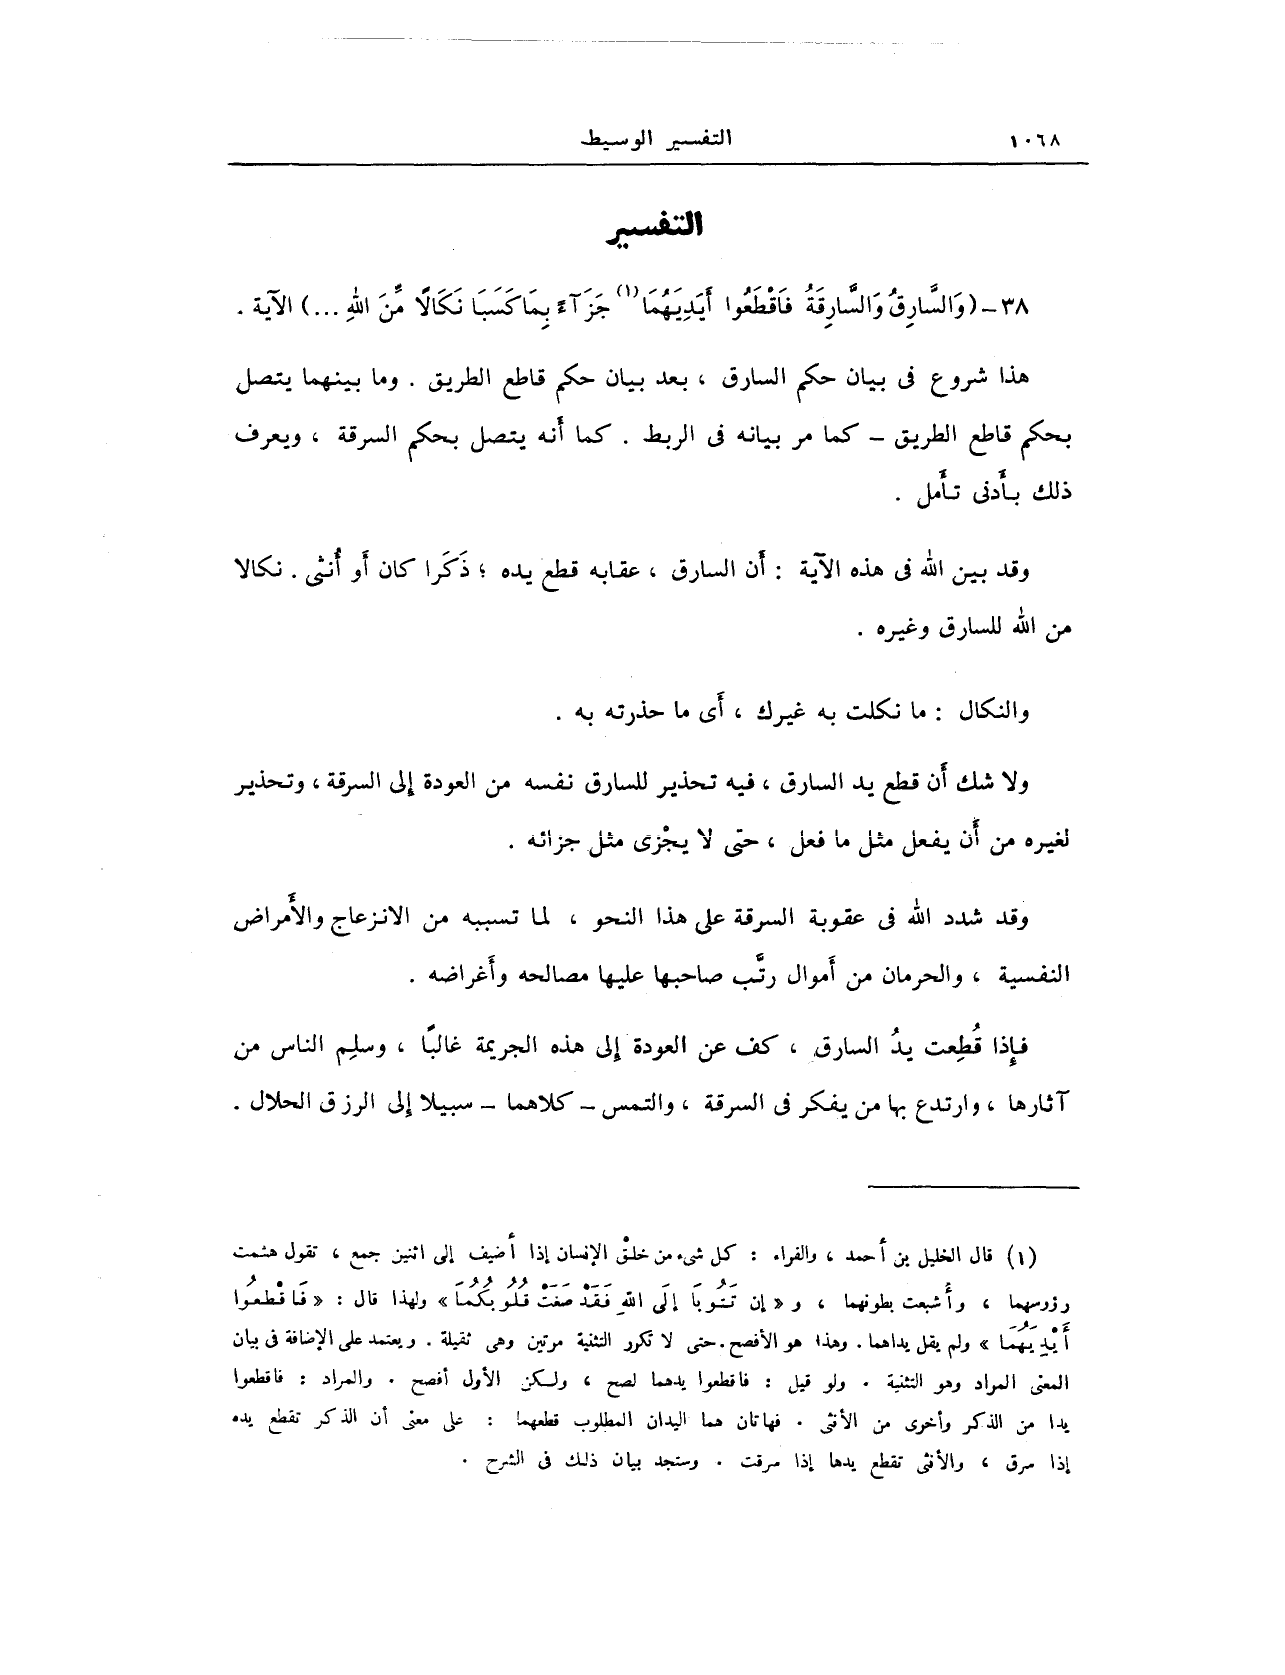 ١٠٦٨ التفسير الوسيط
التفسير
٣٨ – (وَالسَّارِقُ وَالسَّارِقَةُ فَاقْطَعُوا أَيْدِيَهُمَا (١) جَزَآءً بِمَا كَسَبَا نَكَالًا مِّنَ اللهِ ...) الآية .
هذا شروع فى بيان حكم السارق ، بعد بيان حكم قاطع الطريق . وما بينهما يتصل
بحكم قاطع الطريق – كما مر بيانه فى الربط . كما أنه يتصل بحكم السرقة ، ويعرف
ذلك بأدنى تأمل .
وقد بين الله فى هذه الآية : أن السارق ، عقابه قطع يده ؛ ذَكَرا كان أو أُنثى . نكالا
من الله للسارق وغيره .
والنكال : ما نكلت به غيرك ، أى ما حذرته به .
ولا شك أن قطع يد السارق ، فيه تحذير للسارق نفسه من العودة إلى السرقة ، وتحذير
لغيره من أن يفعل مثل ما فعل ، حتى لا يجْزى مثل جزائه .
وقد شدد الله فى عقوبة السرقة على هذا النحو ، لما تسببه من الانزعاج والأمراض
النفسية ، والحرمان من أموال رتَّب صاحبها عليها مصالحه وأغراضه .
فإذا قُطِعت يدُ السارق ، كف عن العودة إلى هذه الجريمة غالبًا ، وسلِم الناس من
آثارها ، وارتدع بها من يفكر فى السرقة ، والتمس – كلاهما – سبيلا إلى الرزق الحلال .
(١) قال الخليل بن أحمد ، والفراء : كل شىء من خلْق الإنسان إذا أضيف إلى اثنين جمع ، تقول هشمت
رؤرسهما ، وأُشبعت بطونهما ، و « إن تَتُوبَا إلَى اللهِ فَقَدْ صَغَتْ قُلُوبُكُمَا » ولهذا قال : « فَاقْطعُوا
أَيْدِيَهُمَا » ولم يقل يداهما . وهذا هو الأفصح . حتى لا تكرر التثنية مرتين وهى ثقيلة . ويعتمد على الإضافة فى بيان
المعنى المراد وهو التثنية . ولو قيل : فاقطعوا يدهما لصح ، ولكن الأول أفصح . والمراد : فاقطعوا
يدا من الذكر وأخرى من الأنثى . فهاتان هما اليدان المطلوب قطعهما : على معنى أن الذكر تقطع يده
إذا سرق ، والأنثى تقطع يدها إذا سرقت . وستجد بيان ذلك فى الشرح .